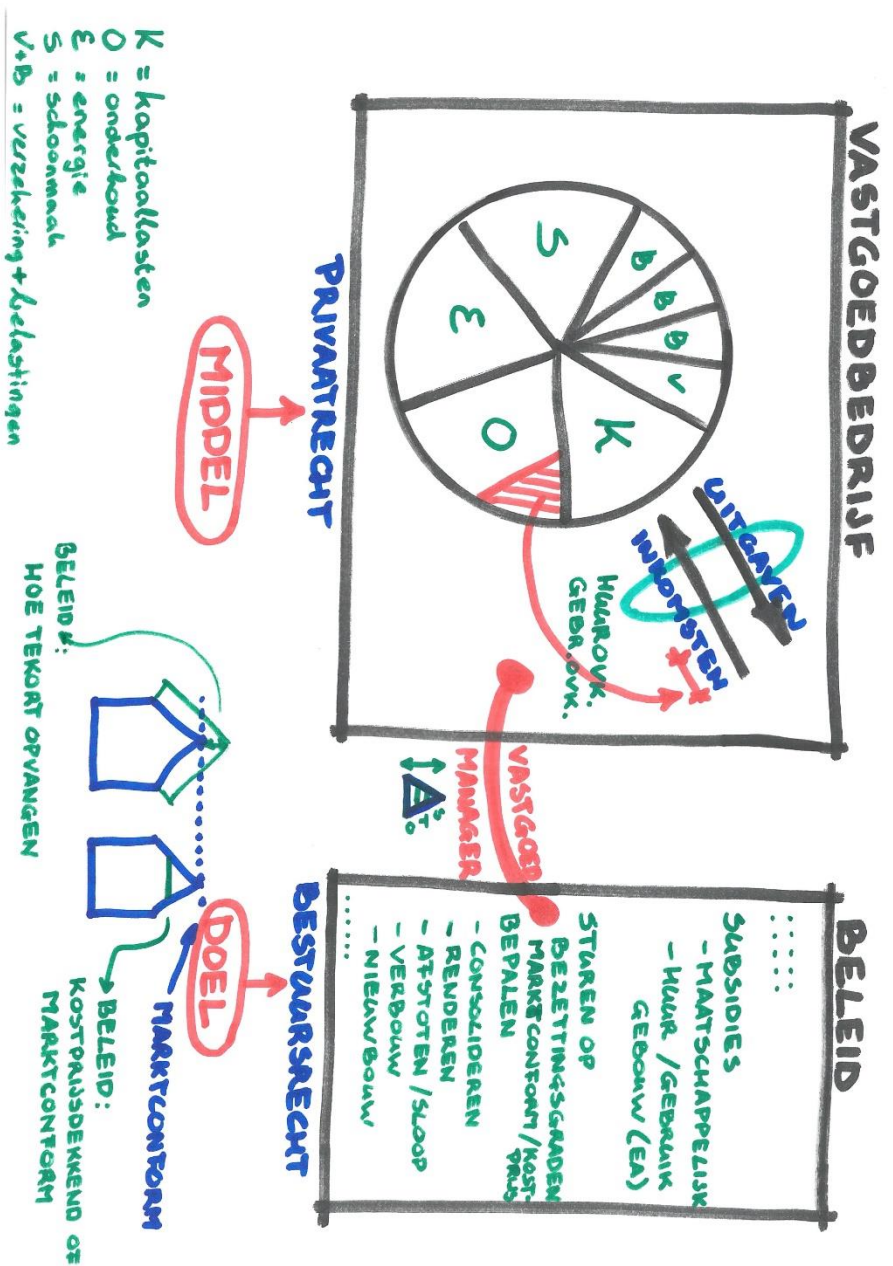 VASTGOEDBEDRIJF
B
B
B
V
K
S
E
O
UITGAVEN
INKOMSTEN
HUUROVK.
GEBR.OVK.
PRIVAATRECHT
MIDDEL
K = kapitaallasten
O = onderhoud
E = energie
S = schoonmaak
V+B = verzekering + belastingen
VASTGOED
MANAGER
S
T
O
BELEID
SUBSIDIES
- MAATSCHAPPELIJK
- HUUR / GEBRUIK
GEBOUW (EA)
STUREN OP
BEZETTINGSGRADEN
MARKTCONFORM / KOST-
PRIJS
BEPALEN
- CONSOLIDEREN
- RENDEREN
- AFSTOTEN / SLOOP
- VERBOUW
- NIEUWBOUW
BESTUURSRECHT
DOEL
MARKTCONFORM
BELEID:
KOSTPRIJSDEKKEND OF
MARKTCONFORM
BELEID:
HOE TEKORT OPVANGEN